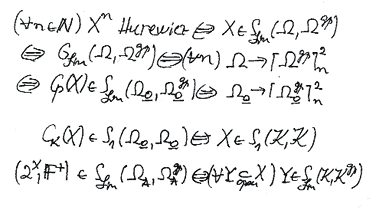 (∀n∈ℕ) Xⁿ Hurewicz ⇔ X∈S_fin(Ω, Ω^gp)
⇔ G_fin(Ω, Ω^gp) ⇔ (∀n) Ω→⌈Ω^gp⌉²_n
⇔ Cp(X)∈S_fin(Ω_0, Ω_0^gp) ⇔ Ω_0→⌈Ω_0^gp⌉²_n
C_K(X)∈S_1(Ω_0, Ω_0) ⇔ X∈S_1(K,K)
(2^X, F⁺)∈S_fin(Ω_A, Ω_A^gp) ⇔ (∀Y⊆_open X) Y∈S_fin(K,K^gp)